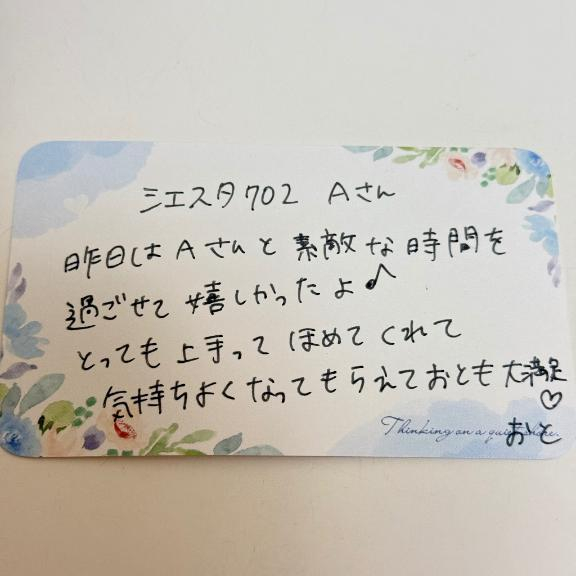 シエスタ702 Aさん
昨日はAさんと素敵な時間を
過ごせて嬉しかったよ♪
とっても上手ってほめてくれて
気持ちよくなってもらえておとも大満足♡
Thinking on a quiet shore.
おと